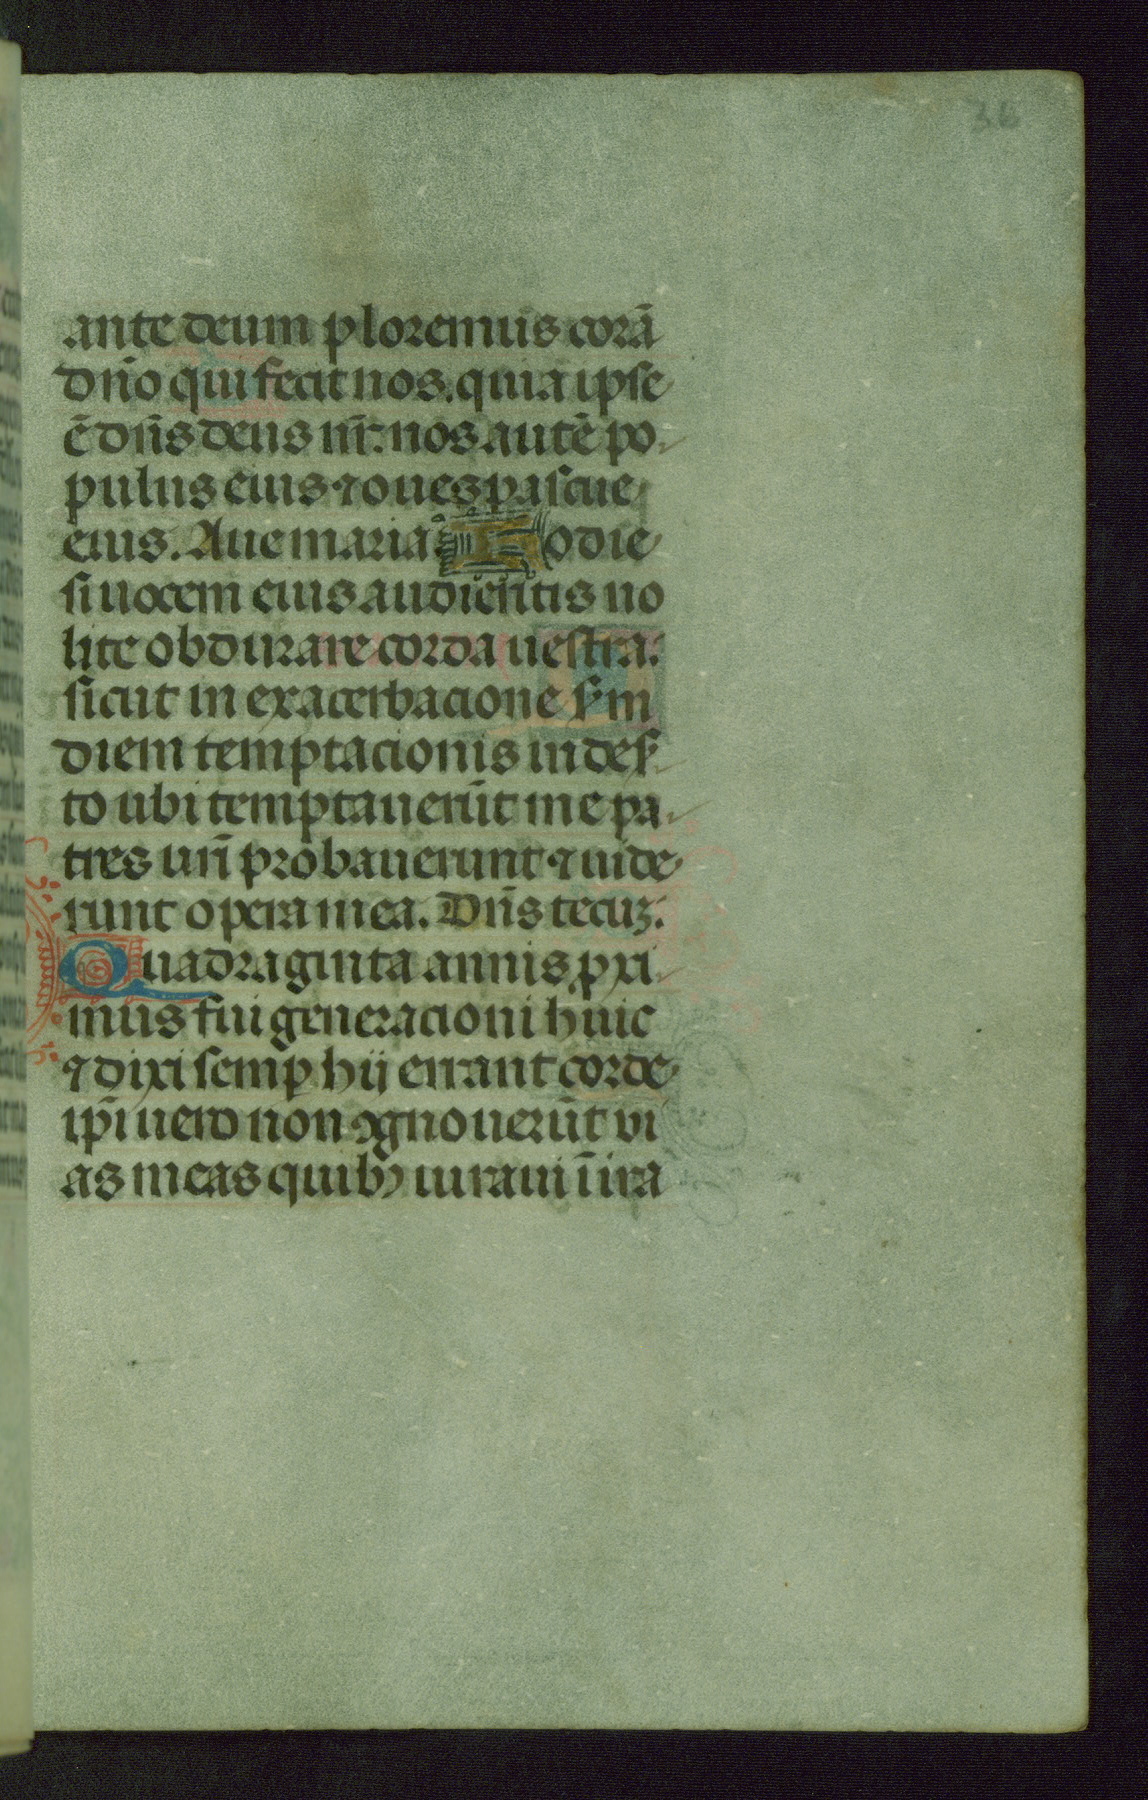 ante deum ploremus corā
dn̄o qui fecit nos. quia ipse
ē dn̄s deus nr̄. nos autē po
pulus eius ⁊ oues pascue
eius. Aue maria. Hodie
si uocem eius audieritis no
lite obdurare corda uestra.
sicut in exacerbacione scd̄m
diem temptacionis in deser
to ubi temptauerūt me pa
tres urī probauerunt ⁊ uide
runt opera mea. Dn̄s tecuꝫ.
Quadraginta annis ꝓxi
mus fui generacioni huic
⁊ dixi semꝑ hij errant corde
ip̄i uero non ꝯgnouerūt vi
as meas quibꝫ iuraui ī ira